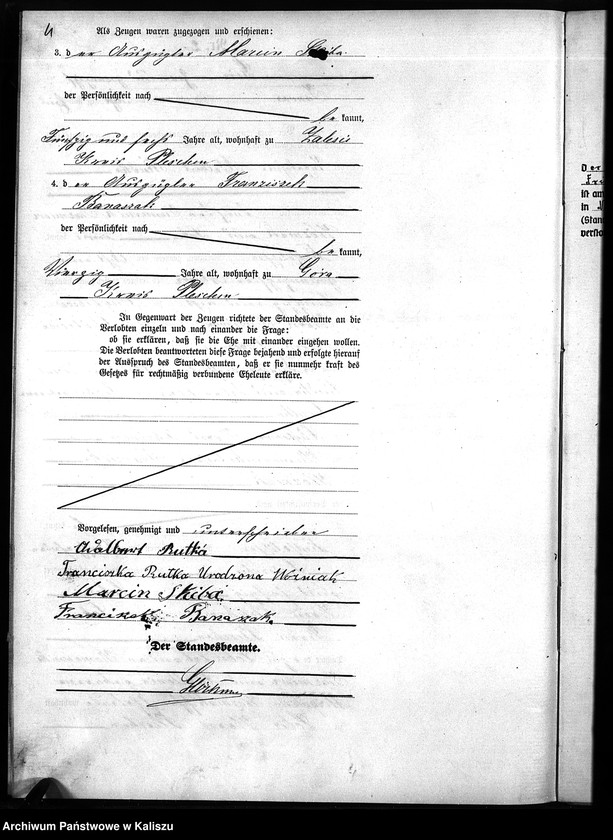 4
Als Zeugen waren zugezogen und erschienen:
3. d er Auszügler Marcin Skiba
der Persönlichkeit nach
be kannt,
Fünfzig und sechs Jahre alt, wohnhaft zu Zalesie
Kreis Pleschen
4. d er Auszügler Franziszek
Banaszak
der Persönlichkeit nach
be kannt,
Vierzig Jahre alt, wohnhaft zu Góra
Kreis Pleschen
In Gegenwart der Zeugen richtete der Standesbeamte an die
Verlobten einzeln und nach einander die Frage:
ob sie erklären, daß sie die Ehe mit einander eingehen wollen.
Die Verlobten beantworteten diese Frage bejahend und erfolgte hierauf
der Ausspruch des Standesbeamten, daß er sie nunmehr kraft des
Gesetzes für rechtmäßig verbundene Eheleute erkläre.
Vorgelesen, genehmigt und unterschrieben
Adalbert Rutka
Franciszka Rutka Urodzona Woźniak
Marcin Skiba
Franciszek Banaszak
Der Standesbeamte.
Der
Fr
ist am
in
(Stan
versto
Archiwum Państwowe w Kaliszu